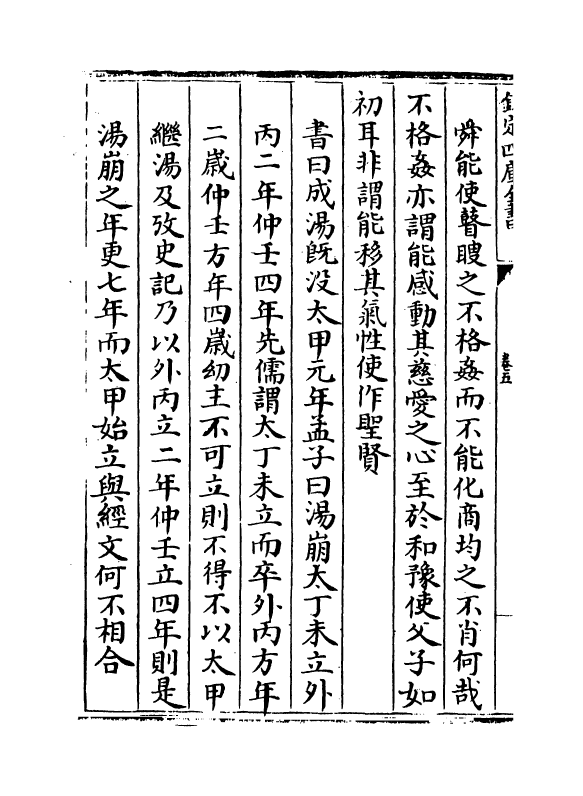 欽定四庫全書
卷五
舜能使瞽瞍之不格姦而不能化商均之不肖何哉
不格姦亦謂能感動其慈愛之心至於和豫使父子如
初耳非謂能移其氣性使作聖賢
書曰成湯既没太甲元年孟子曰湯崩太丁未立外
丙二年仲壬四年先儒謂太丁未立而卒外丙方年
二歳仲壬方年四歳幼主不可立則不得不以太甲
繼湯及攷史記乃以外丙立二年仲壬立四年則是
湯崩之年更七年而太甲始立與經文何不相合